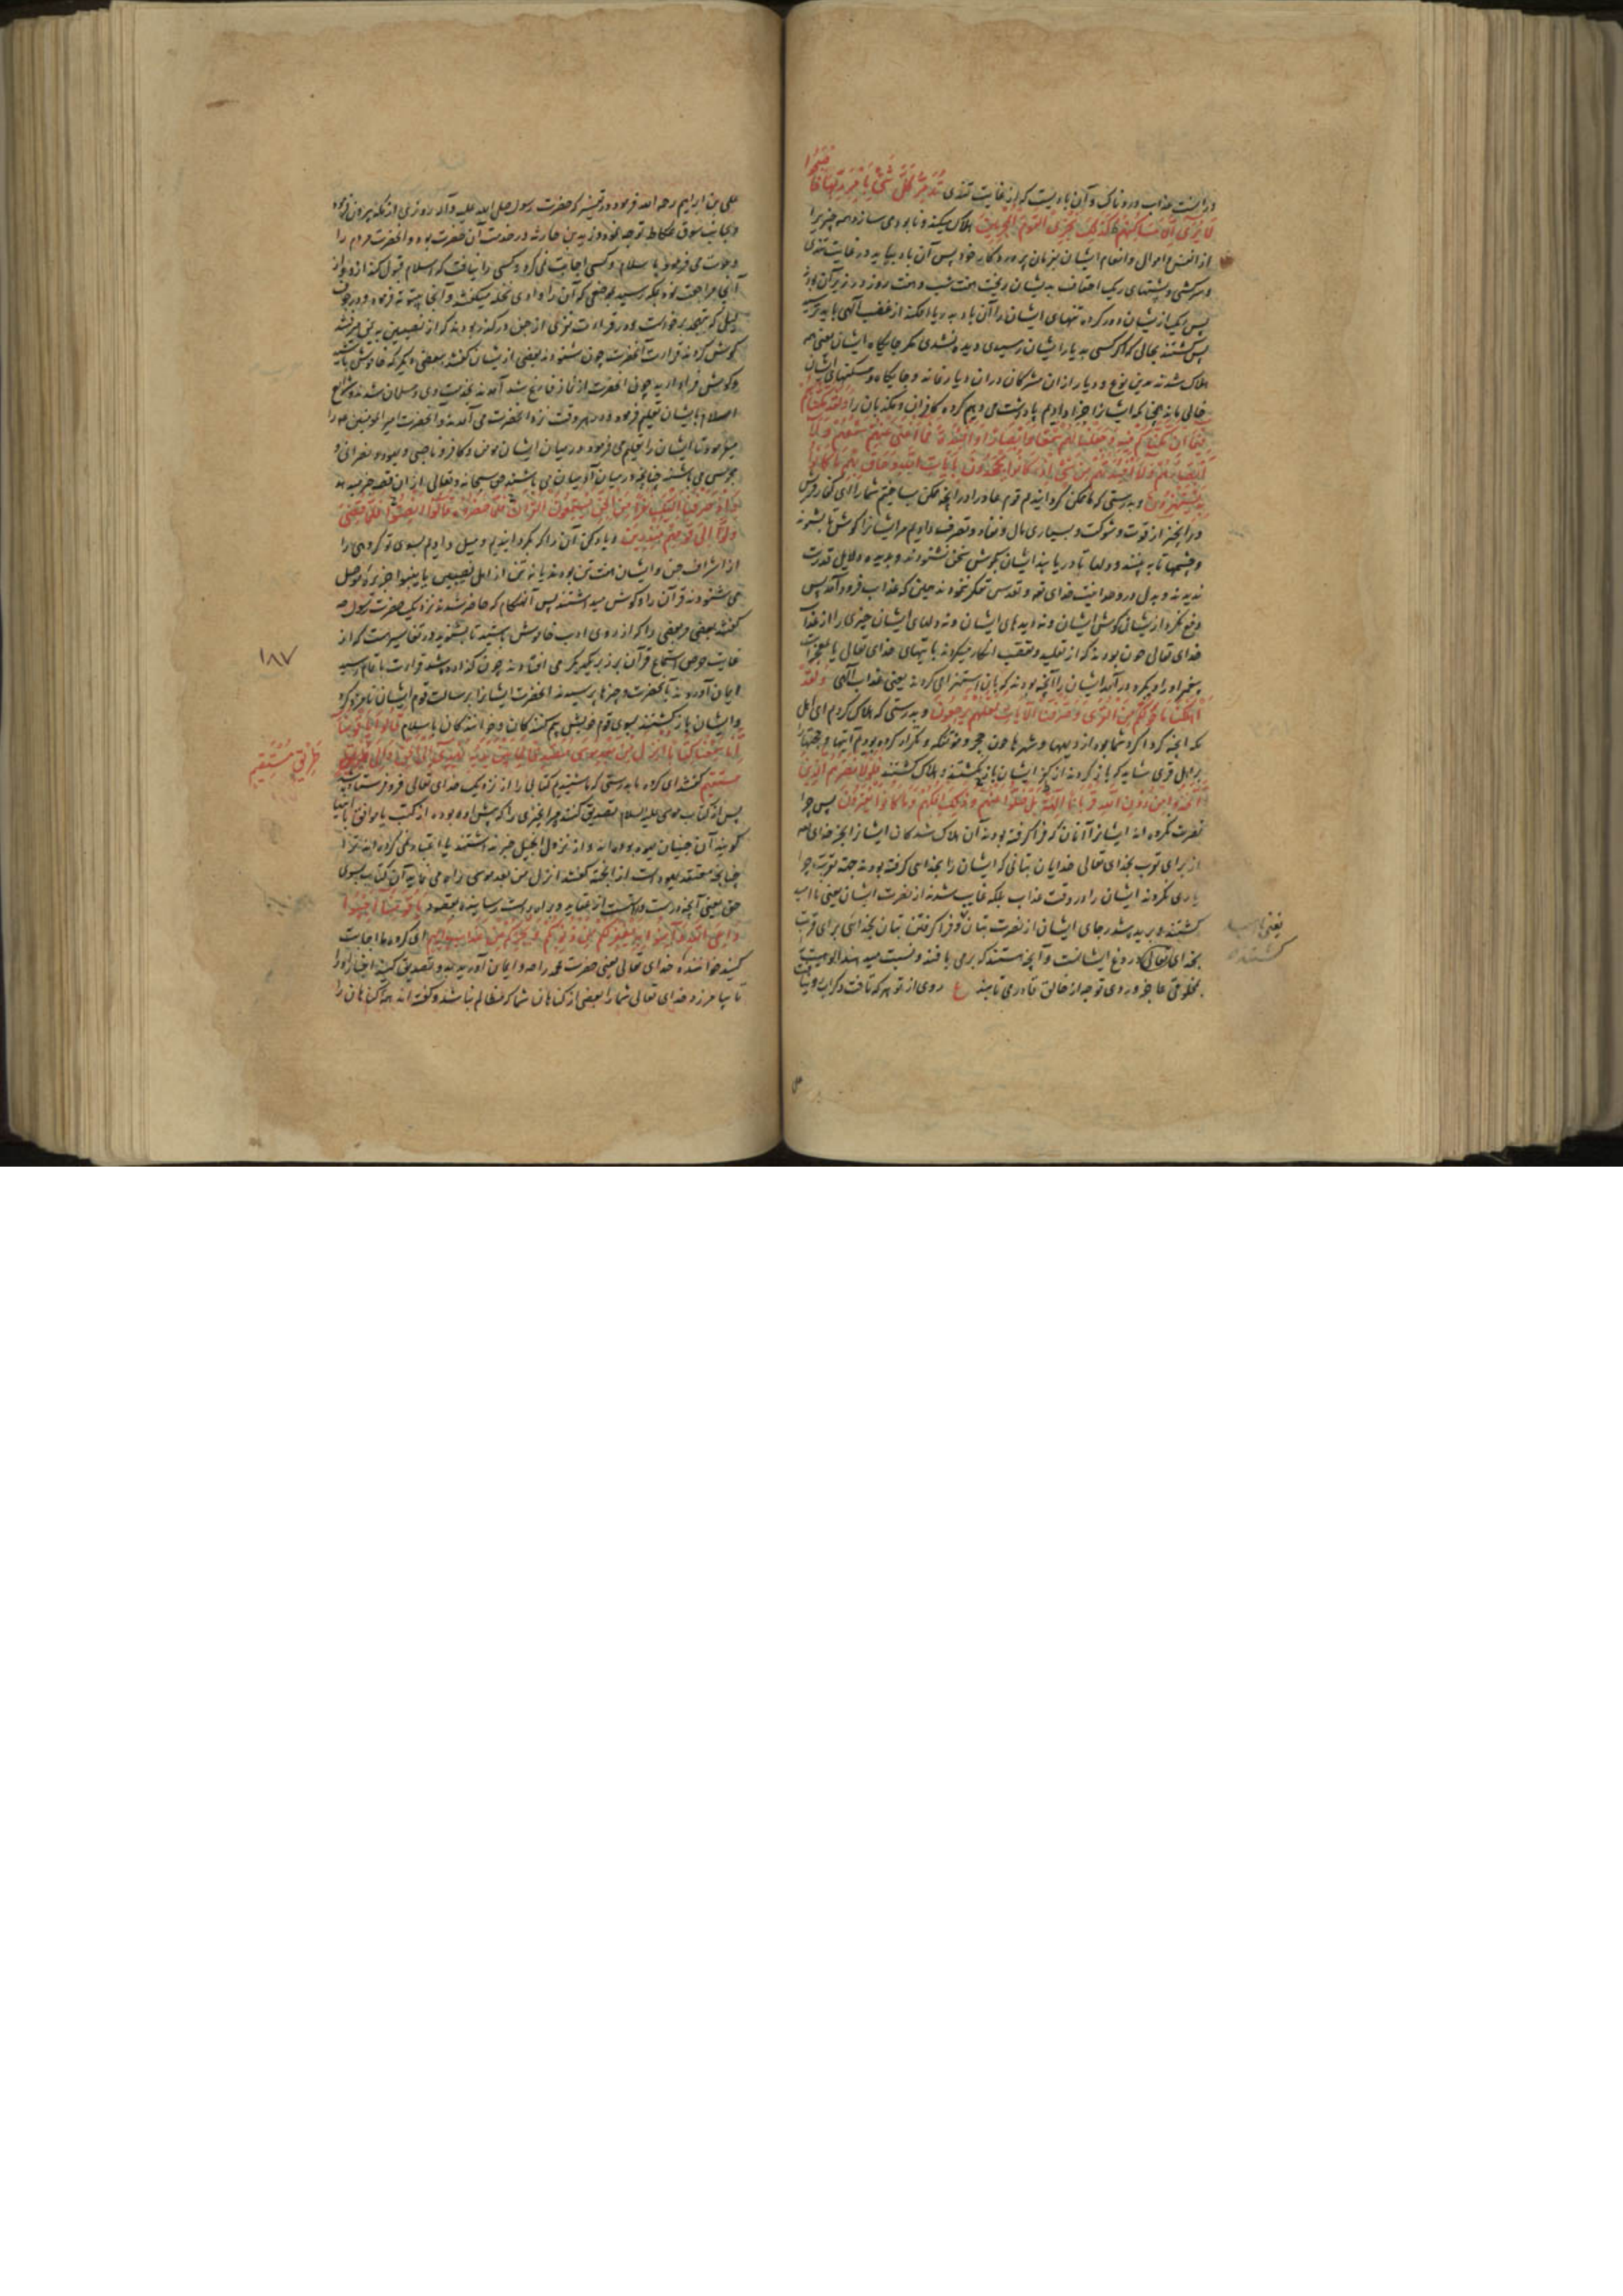 فاصبحوا
در آنست عذاب دردناک و آن بادیست که از غایت تندی تُدَمِّرُ كُلَّ شَيْءٍ بِأَمْرِ رَبِّهَا
لَا يُرَىٰ إِلَّا مَسَاكِنُهُمْ كَذَٰلِكَ نَجْزِي الْقَوْمَ الْمُجْرِمِينَ هلاک میکند و نابود می سازد همه چیز را
از انفس و اموال و انعام ایشان بفرمان پروردگار خود پس آن باد بیاید در غایت تندی
و سرکشی و پشتهای ریک احقاف بدیشان ریخت هفت شب و هشت روز در زیر آن بودند
پس ریک از ایشان دور کرده تنهای ایشان را آن باد به دریا افکند از غضب الهی باید ترسید
پس گشتند بحالی که اگر کسی به دیار ایشان رسیدی دیده نشدی مگر جایگاه ایشان یعنی همه
هلاک شدند بدین نوع و دیار از ان مشرکان در ان دیار نماند و جایگاه و مسکنهای ایشان
خالی بماند همچنانکه ایشانرا جزا دادیم پاداشت می دهیم گروه کافران و مکذبان را وَلَقَدْ مَكَّنَّاهُمْ
فِيمَا إِنْ مَكَّنَّاكُمْ فِيهِ وَجَعَلْنَا لَهُمْ سَمْعًا وَأَبْصَارًا وَأَفْئِدَةً فَمَا أَغْنَىٰ عَنْهُمْ سَمْعُهُمْ وَلَا
أَبْصَارُهُمْ وَلَا أَفْئِدَتُهُمْ مِنْ شَيْءٍ إِذْ كَانُوا يَجْحَدُونَ بِآيَاتِ اللَّهِ وَحَاقَ بِهِمْ مَا كَانُوا
بِهِ يَسْتَهْزِئُونَ و بدرستی که ما ممکن گردانیدیم قوم عاد را در آنچه ممکن نساختیم شما را ای کفار قریش
در آنچیز از قوت و شوکت و بسیاری مال و نفاد و تصرف دادیم مر ایشانرا گوش تا بشنوند
و چشمها تا به بینند و دلها تا دریابند ایشان بگوش سخن نشنودند و بدیده دلایل قدرت
ندیدند و بدل در وحدانیت خدای تعالی و تقدس تفکر ننمودند حین که عذاب فرود آمد پس
دفع نکرد از ایشان گوش ایشان و نه دیدهای ایشان و نه دلهای ایشان چیزی را از عذاب
خدای تعالی چون بودند که از تقلید و تعصب انکار میکردند بآیتهای خدای تعالی یا بمعجزات
پیغمبر او را و بکرد در آمد ایشان را آنچه بودند که بآن استهزا می کردند یعنی عذاب الهی وَلَقَدْ
أَهْلَكْنَا مَا حَوْلَكُمْ مِنَ الْقُرَىٰ وَصَرَّفْنَا الْآيَاتِ لَعَلَّهُمْ يَرْجِعُونَ و بدرستی که هلاک کردیم ای اهل
مکه آنچه گرداگرد شما بود از دیهها و شهرها چون حجر و مؤتفکه و تکرار کرده بودیم آیتها و حجتها
بر اهل قری شاید که باز گردند از کفر ایشان باز نگشتند و هلاک گشتند فَلَوْلَا نَصَرَهُمُ الَّذِينَ
اتَّخَذُوا مِنْ دُونِ اللَّهِ قُرْبَانًا آلِهَةً بَلْ ضَلُّوا عَنْهُمْ وَذَٰلِكَ إِفْكُهُمْ وَمَا كَانُوا يَفْتَرُونَ پس چرا
نصرت نکرده اند ایشانرا آنان که فرا گرفته بودند آن هلاک شدکان ایشانرا بجز خدای
از برای تقرب بخدای تعالی خدایان بتانی که ایشان را بخدایی گرفته بودند جهة تقرب چرا
یاری نکردند ایشان را در وقت عذاب بلکه غایب شدند از نصرت ایشان یعنی نا امید
گشتند و برید شد رجای ایشان از نصرت بتان و فرا گرفتن بتان بخدائی برای قربت
بخدای تعالی دروغ ایشانست و آنچه هستند که بر می بافند و نسبت میدهند الوهیت
بمخلوقی عاجز و روی توجه از خالق قادر می تابند ع روی از تو هر که تافت
یعنی نا امید
گشتند
علی بن ابراهیم رحمه الله فرموده در تفسیر که حضرت رسول صلی الله علیه و آله روزی از مکه بیرون فرمود
و بجانب سوق عکاظ توجه نمود و زید بن حارثه در خدمت آن حضرت بود و انحضرت مردم را
دعوت می فرمود باسلام و کسی اجابت نمی کرد و کسی را نیافت که اسلام قبول کند از و پس از
آنجا مراجعت نموده بمکه رسید بموضعی که آن را وادی نخله میگفتند و آنجا بیتوته فرمود و در جوف
لیل که بتهجد برخواست و در قرائت نفری از جن در گذر بودند که از نصیبین به یمن میرفتند
گوش کردند قرائت آنحضرت چون شنودند بعضی از ایشان گفتند ببعضی دیگر که خاموش باشید
و گوش فرا دارید چون انحضرت از نماز فارغ شد آمدند بخدمت وی و مسلمان شدند و شرایع
اسلام بایشان تعلیم فرمود و در هر وقت نزد انحضرت می آمدند و انحضرت امیر المؤمنین را
میفرمود تا ایشان را تعلیم می فرمود و در میان ایشان مؤمن و کافر و ناصبی و یهود و نصرانی و
مجوسی می باشند چنانچه در میان آدمیان می باشند حق سبحانه و تعالی از ان قصه خبر میدهد
وَإِذْ صَرَفْنَا إِلَيْكَ نَفَرًا مِنَ الْجِنِّ يَسْتَمِعُونَ الْقُرْآنَ فَلَمَّا حَضَرُوهُ قَالُوا أَنْصِتُوا فَلَمَّا قُضِيَ
وَلَّوْا إِلَىٰ قَوْمِهِمْ مُنْذِرِينَ و یاد کن آن را که بگردانیدیم و میل دادیم بسوی تو گروهی را
از اشراف جن و ایشان هفت تن بودند یا نه تن از اهل نصیبین یا نینوا جزیره موصل
می شنودند قرآن را و گوش میداشتند پس آنهنگام که حاضر شدند نزدیک حضرت رسول
گفتند بعضی مر بعضی را که از روی ادب خاموش باشید تا بشنوید و در تفاسیر هست که از
غایت حرص استماع قرآن بر زبر یکدیگر می افتادند چون گذارده شد قراءت باتمام رسید
ایمان آوردند بآنحضرت و چیزها پرسیدند انحضرت ایشانرا برسالت قوم ایشان نامزد کرد
و ایشان باز گشتند بسوی قوم خویش بیم کنندگان و خوانندکان باسلام قَالُوا يَا قَوْمَنَا
إِنَّا سَمِعْنَا كِتَابًا أُنْزِلَ مِنْ بَعْدِ مُوسَىٰ مُصَدِّقًا لِمَا بَيْنَ يَدَيْهِ يَهْدِي إِلَى الْحَقِّ وَإِلَىٰ طَرِيقٍ
طَرِيقٍ مُسْتَقِيمٍ
مستقیم گفتند ای گروه ما بدرستی که ما شنیدیم کتابی را از نزدیک خدای تعالی فرو فرستاده شد
پس از کتاب موسی علیه السلام تصدیق کننده مر انچیزی را که پیش او بوده از کتب یا موافق بآنها
گویند آن جنیان یهود بوده اند و از نزول انجیل خبر نداشتند یا اعتبار نمی کرده اند آنرا
چنانچه معتقد یهود است از انجهة گفتند انزل من بعد موسی راه می نماید آن کتاب بسوی
حق یعنی آنچه درست و راست از عقاید و براه راست رساننده بمقصود يَا قَوْمَنَا أَجِيبُوا
دَاعِيَ اللَّهِ وَآمِنُوا بِهِ يَغْفِرْ لَكُمْ مِنْ ذُنُوبِكُمْ وَيُجِرْكُمْ مِنْ عَذَابٍ أَلِيمٍ ای گروه ما اجابت
کنید خواننده خدای تعالی یعنی حضرت محمد را و ایمان آورید بدو و تصدیق کنید
تا بیامرزد خدای تعالی شما را بعضی از گناهان شما که مظالم نباشد و گفته اند همه گناهان را
۱۸۷